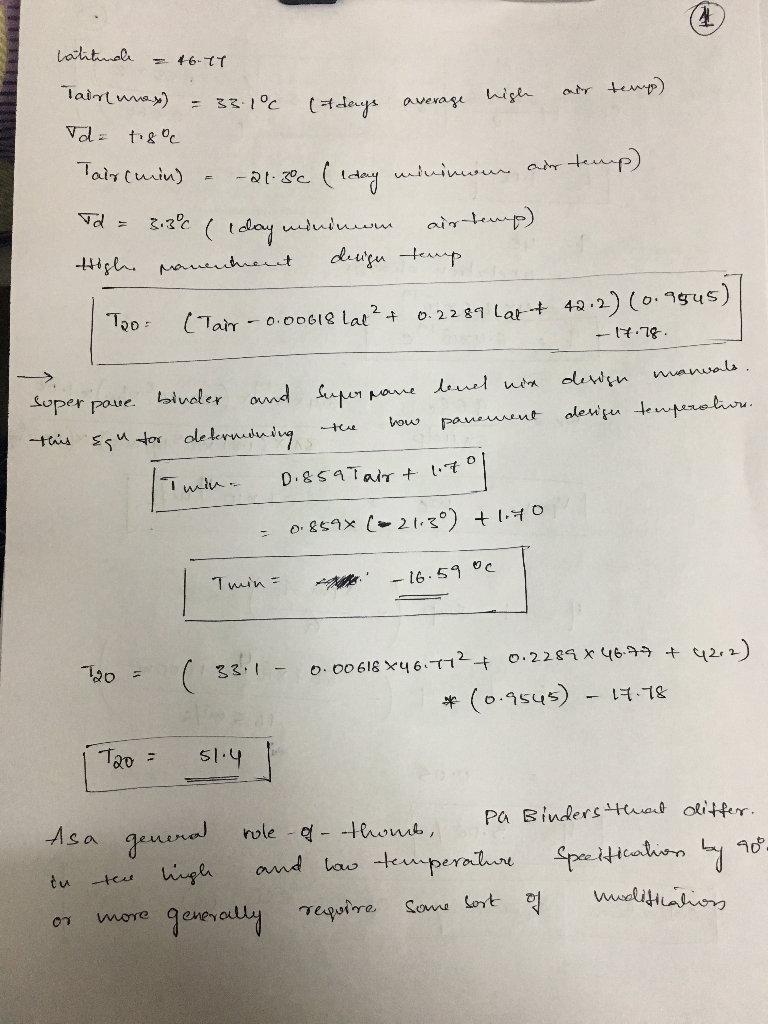 1
Latitude = 46.77
Tair(max) = 33.1°C (7days average high air temp)
σd = 1.8°C
Tair(min) = -21.3°C (1day minimum air temp)
σd = 3.3°C (1day minimum air-temp)
High pavement design temp
T20 = (Tair - 0.00618 Lat² + 0.2289 Lat + 42.2) (0.9545)
-17.78.
→ Super pave binder and Superpave level mix design manuals.
this Eqn for determining the low pavement design temperature.
Tmin = 0.859 Tair + 1.7°
= 0.859 x (-21.3°) + 1.70
Tmin = -16.59 °C
T20 = ( 33.1 - 0.00618 x 46.77² + 0.2289 x 46.77 + 42.2)
* (0.9545) - 17.78
T20 = 51.4
As a general role-of-thomb, PG Binders that differ.
in the high and low temperature Specification by 90°
or more generally require some sort of modification